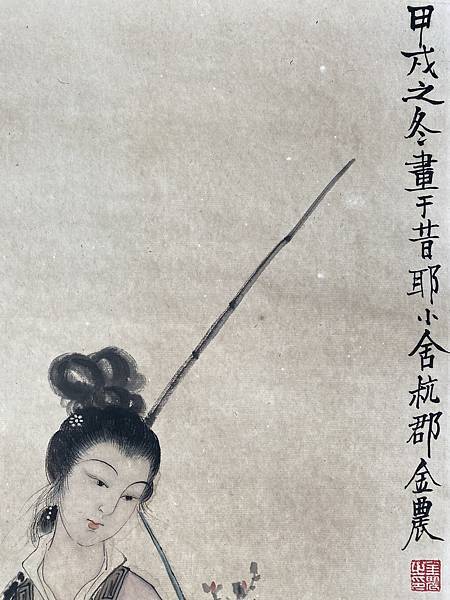 甲戌之冬畫于昔耶小舍杭郡金農